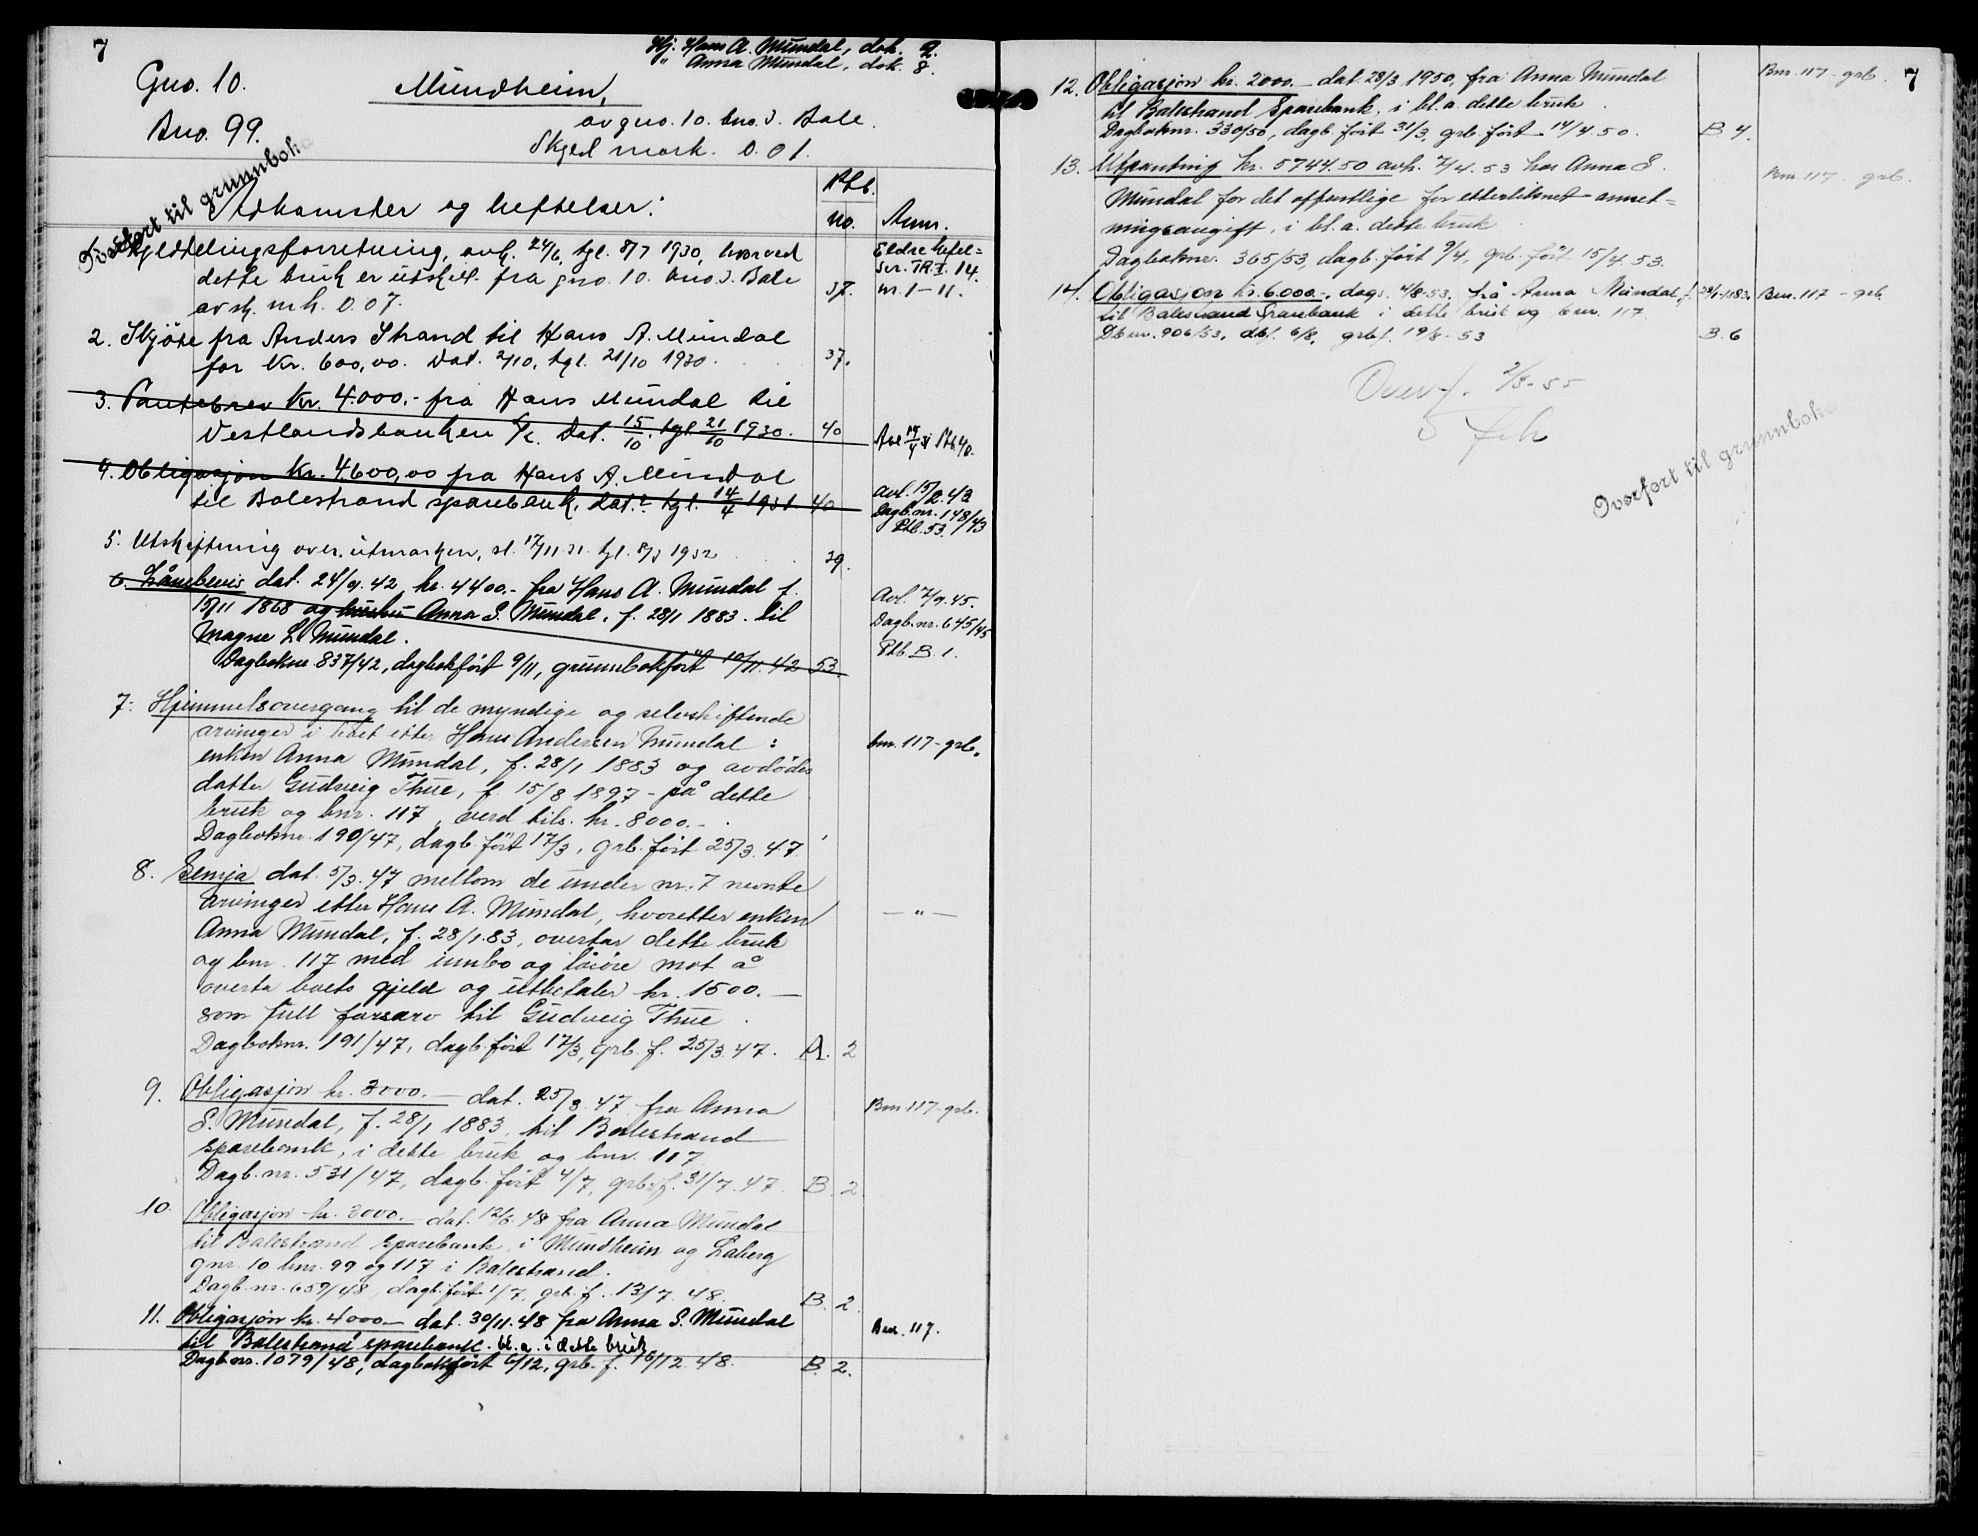 7
Hj. Hans A. Mundal, dok. 2.
" Anna Mundal, dok. 8.
Gno. 10.
Mundheim,
Bno. 99.
av gno. 10. bno 3. Bale.
Skyld mark. 0.01.
Overført til grunnboka
Adkomster og heftelser:
Ptb. no.
Anm.
Skyldelingsforretning, avh. 24/6, tgl. 8/7 1930, hvorved
dette bruk er utskilt fra gno. 10. bno 3. Bale
av sk. mk. 0.07.
37.
Eldre heftel=
ser. TR I. 14.
nr. 1-11.
2. Skjöte fra Anders Strand til Hans A. Mundal
for Kr. 600,00. Dat. 2/10, tgl. 21/10 1930.
37.
3. Pantebrev Kr. 4.000.- fra Hans Mundal til
Vestlandsbanken A/L. Dat. 15/10. tgl 21/10 1930.
40
Avl 14/4 31 Ptb 40.
4. Obligasjon Kr. 4.600,00 fra Hans A. Mundal
til Balestrand sparebank, dat. ? tgl. 14/4 1931.
40
Avl. 15/2.43
Dagb.nr. 148/43
Ptb. 53.
5. Utskiftning over utmarken, sl. 17/11 31. tgl. 8/3 1932
39.
6. Lånebevis dat. 24/9.42 kr. 4400.- fra Hans A. Mundal f.
15/11 1868 og hustru Anna S. Mundal, f. 28/1 1883. til
Magne L. Mundal.
Dagboknr 837/42, dagbokfört 9/11, grunnbokfört 10/11.42
53
Avl. 7/9.45.
Dagb.nr. 645/45
Ptb B. 1.
7. Hjemmelsovergang til de myndige og selvskiftende
arvinger i boet etter Hans Andersen Mundal:
enken Anna Mundal, f. 28/1 1883 og avdödes
datter Gudveig Thue, f. 15/8 1897 - på dette
bruk og bnr. 117, verd tils. kr. 8000.-
Dagboknr. 190/47, dagb. fört 17/3, grb. fört 25/3.47.
bnr. 117 - grb.
8. Semja dat. 5/3.47 mellom de under nr. 7 nevnte
arvinger etter Hans A. Mundal, hvoretter enken
Anna Mundal, f. 28/1.83, overtar dette bruk
og bnr. 117 med innbo og lösöre mot å
overta boets gjeld og utbetaler kr. 1500.-
som full farsarv til Gudveig Thue.
Dagboknr. 191/47, dagb. fört 17/3, grb. f. 25/3.47.
A. 2
— " —
9. Obligasjon kr. 3000.- dat. 25/3.47 fra Anna
S. Mundal, f. 28/1 1883, til Balestrand
sparebank, i dette bruk og bnr. 117.
Dagb. nr. 531/47, dagb. fört 4/7, grb. f. 31/7.47.
B. 2
Bnr 117 - grb.
10. Obligasjon kr. 3000.- dat. 12/6.48 fra Anna Mundal
til Balestrand sparebank, i Mundheim og Laberg
gnr. 10 bnr. 99 og 117 i Balestrand.
Dagb. nr. 659/48, dagb. fört 1/7, grb. f. 13/7.48.
B. 2.
11. Obligasjon kr. 4000.- dat. 30/11.48 fra Anna S. Mundal
til Balestrand sparebank. bl.a. i dette bruk
Dagb.nr. 1079/48, dagbokfört 6/12, grb. f. 16/12.48.
B. 2.
Bnr. 117.
7
12. Obligasjon kr. 2000.- dat 28/3 1950, fra Anna Mundal
til Balestrand Sparebank, i bl.a. dette bruk.
Dagboknr. 330/50, dagb. fört 31/3, grb fört 14/4.50.
B 4.
Bnr. 117 - grb.
13. Utpanting kr. 5744.50 avh. 7/4.53 hos Anna S.
Mundal for det offentlige for etterliknet omset=
ningsavgift, i bl.a. dette bruk
Dagboknr. 365/53, dagb. fört 9/4, grb. fört 15/4.53.
Bnr. 117 grb.
14. Obligasjon kr. 6.000.-, dags. 4/8-53, frå Anna Mundal, f. 28/1-1883
til Balestrand Sparebank i dette bruk og bnr. 117.
Db nr. 906/53, dbf. 6/8, grbf. 19/8-53
B. 6
Bnr. 117 - grb
Overf. 2/3-55
Overført til grunnboka